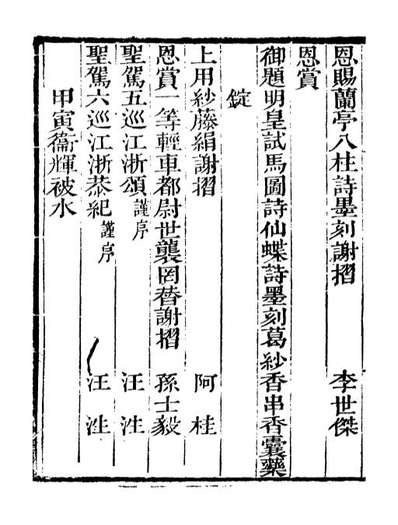 恩賜蘭亭八柱詩墨刻謝摺 李世傑
恩賞
御題明皇試馬圖詩仙蝶詩墨刻葛紗香串香囊藥
錠
上用紗藤絹謝摺 阿桂
恩賞一等輕車都尉世襲罔替謝摺 孫士毅
聖駕五巡江浙頌謹序 汪
聖駕六巡江浙恭紀謹序 汪
甲寅衞輝被水